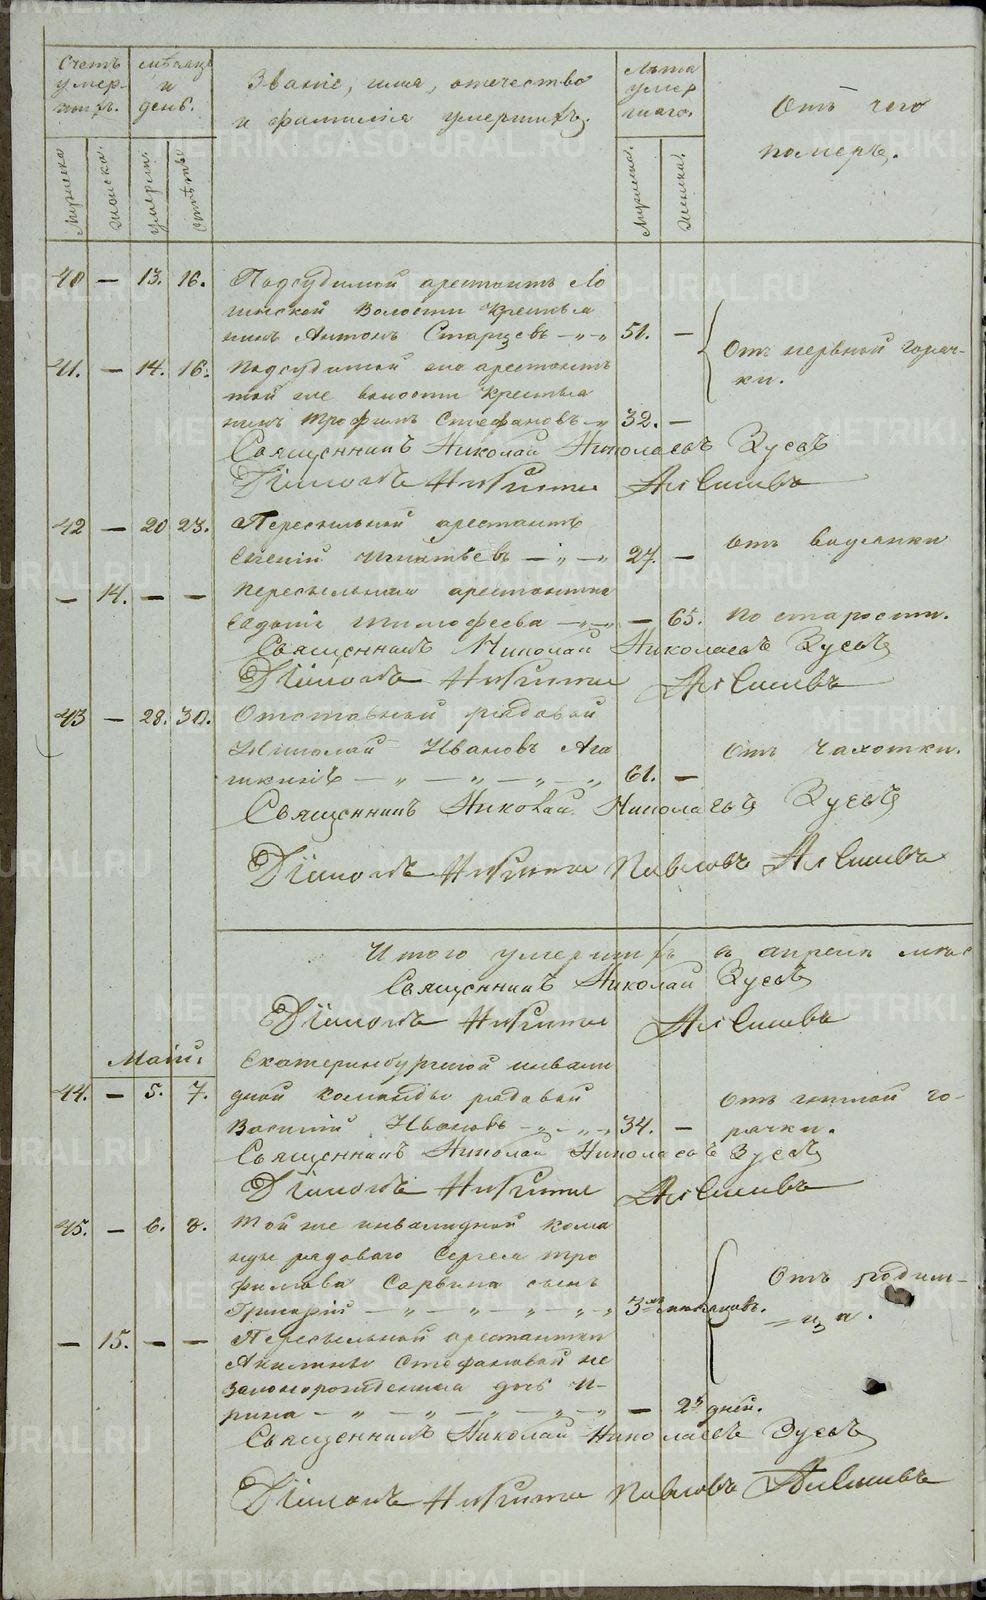 Счетъ умер-шихъ.
Мѣсяцъ и день.
Званіе, имя, отечество
и фамилія умершихъ.
Лѣта умершаго.
Отъ чего
померъ.
Мужеска
Женска.
умерли.
Мужеска.
Женска.
40 — 13. 16. Подсудимой арестантъ
Волости крестья
нинъ Антонъ Старцевъ — 51. —
Отъ нервной горяч-
ки.
41. — 14. 16. Подсудимой арестантъ
той же волости крестья
нинъ Трофимъ Стефановъ — 32. —
Священникъ Николай Николаевъ
Діаконъ Никита
42 — 20 23. Пересыльной арестантъ
Евгеній Игнатьевъ — „ — „ 27. —
Отъ водянки
— 14. — — Пересыльная арестантка
Евдокія Тимофеева — „ — „ — 65. По старости.
Священникъ Николай Николаевъ
Діаконъ Никита
43 — 28. 30. Отставной рядовой
Николай Ивановъ Ага
шкинъ — „ — „ — „ — „ 61. —
Отъ чахотки.
Священникъ Николай Николаевъ
Діаконъ Никита Павловъ
Итого умершихъ въ апрелѣ мѣс
Священникъ Николай
Діаконъ Никита
Маій.
Екатеринбургской инвали
44. — 5. 7. дной команды рядовой
Василій Ивановъ — „ — „ 34. —
Отъ гнилой го-
рячки.
Священникъ Николай Николаевъ
Діаконъ Никита
45. — 6. 8. Той же инвалидной кома
нды рядоваго Сергея Тро
фимова сынъ
Григорій — „ — „ — „ — „ 3 мѣсяцовъ.
Отъ родим-
=ца.
— 15. — — Пересыльной арестантки
Акилины Стефановой не
законорожденная дочь И-
рина — „ — „ — „ — „ — 25 дней.
Священникъ Николай Николаевъ
Діаконъ Никита Павловъ
METRIKI.GASO-URAL.RU